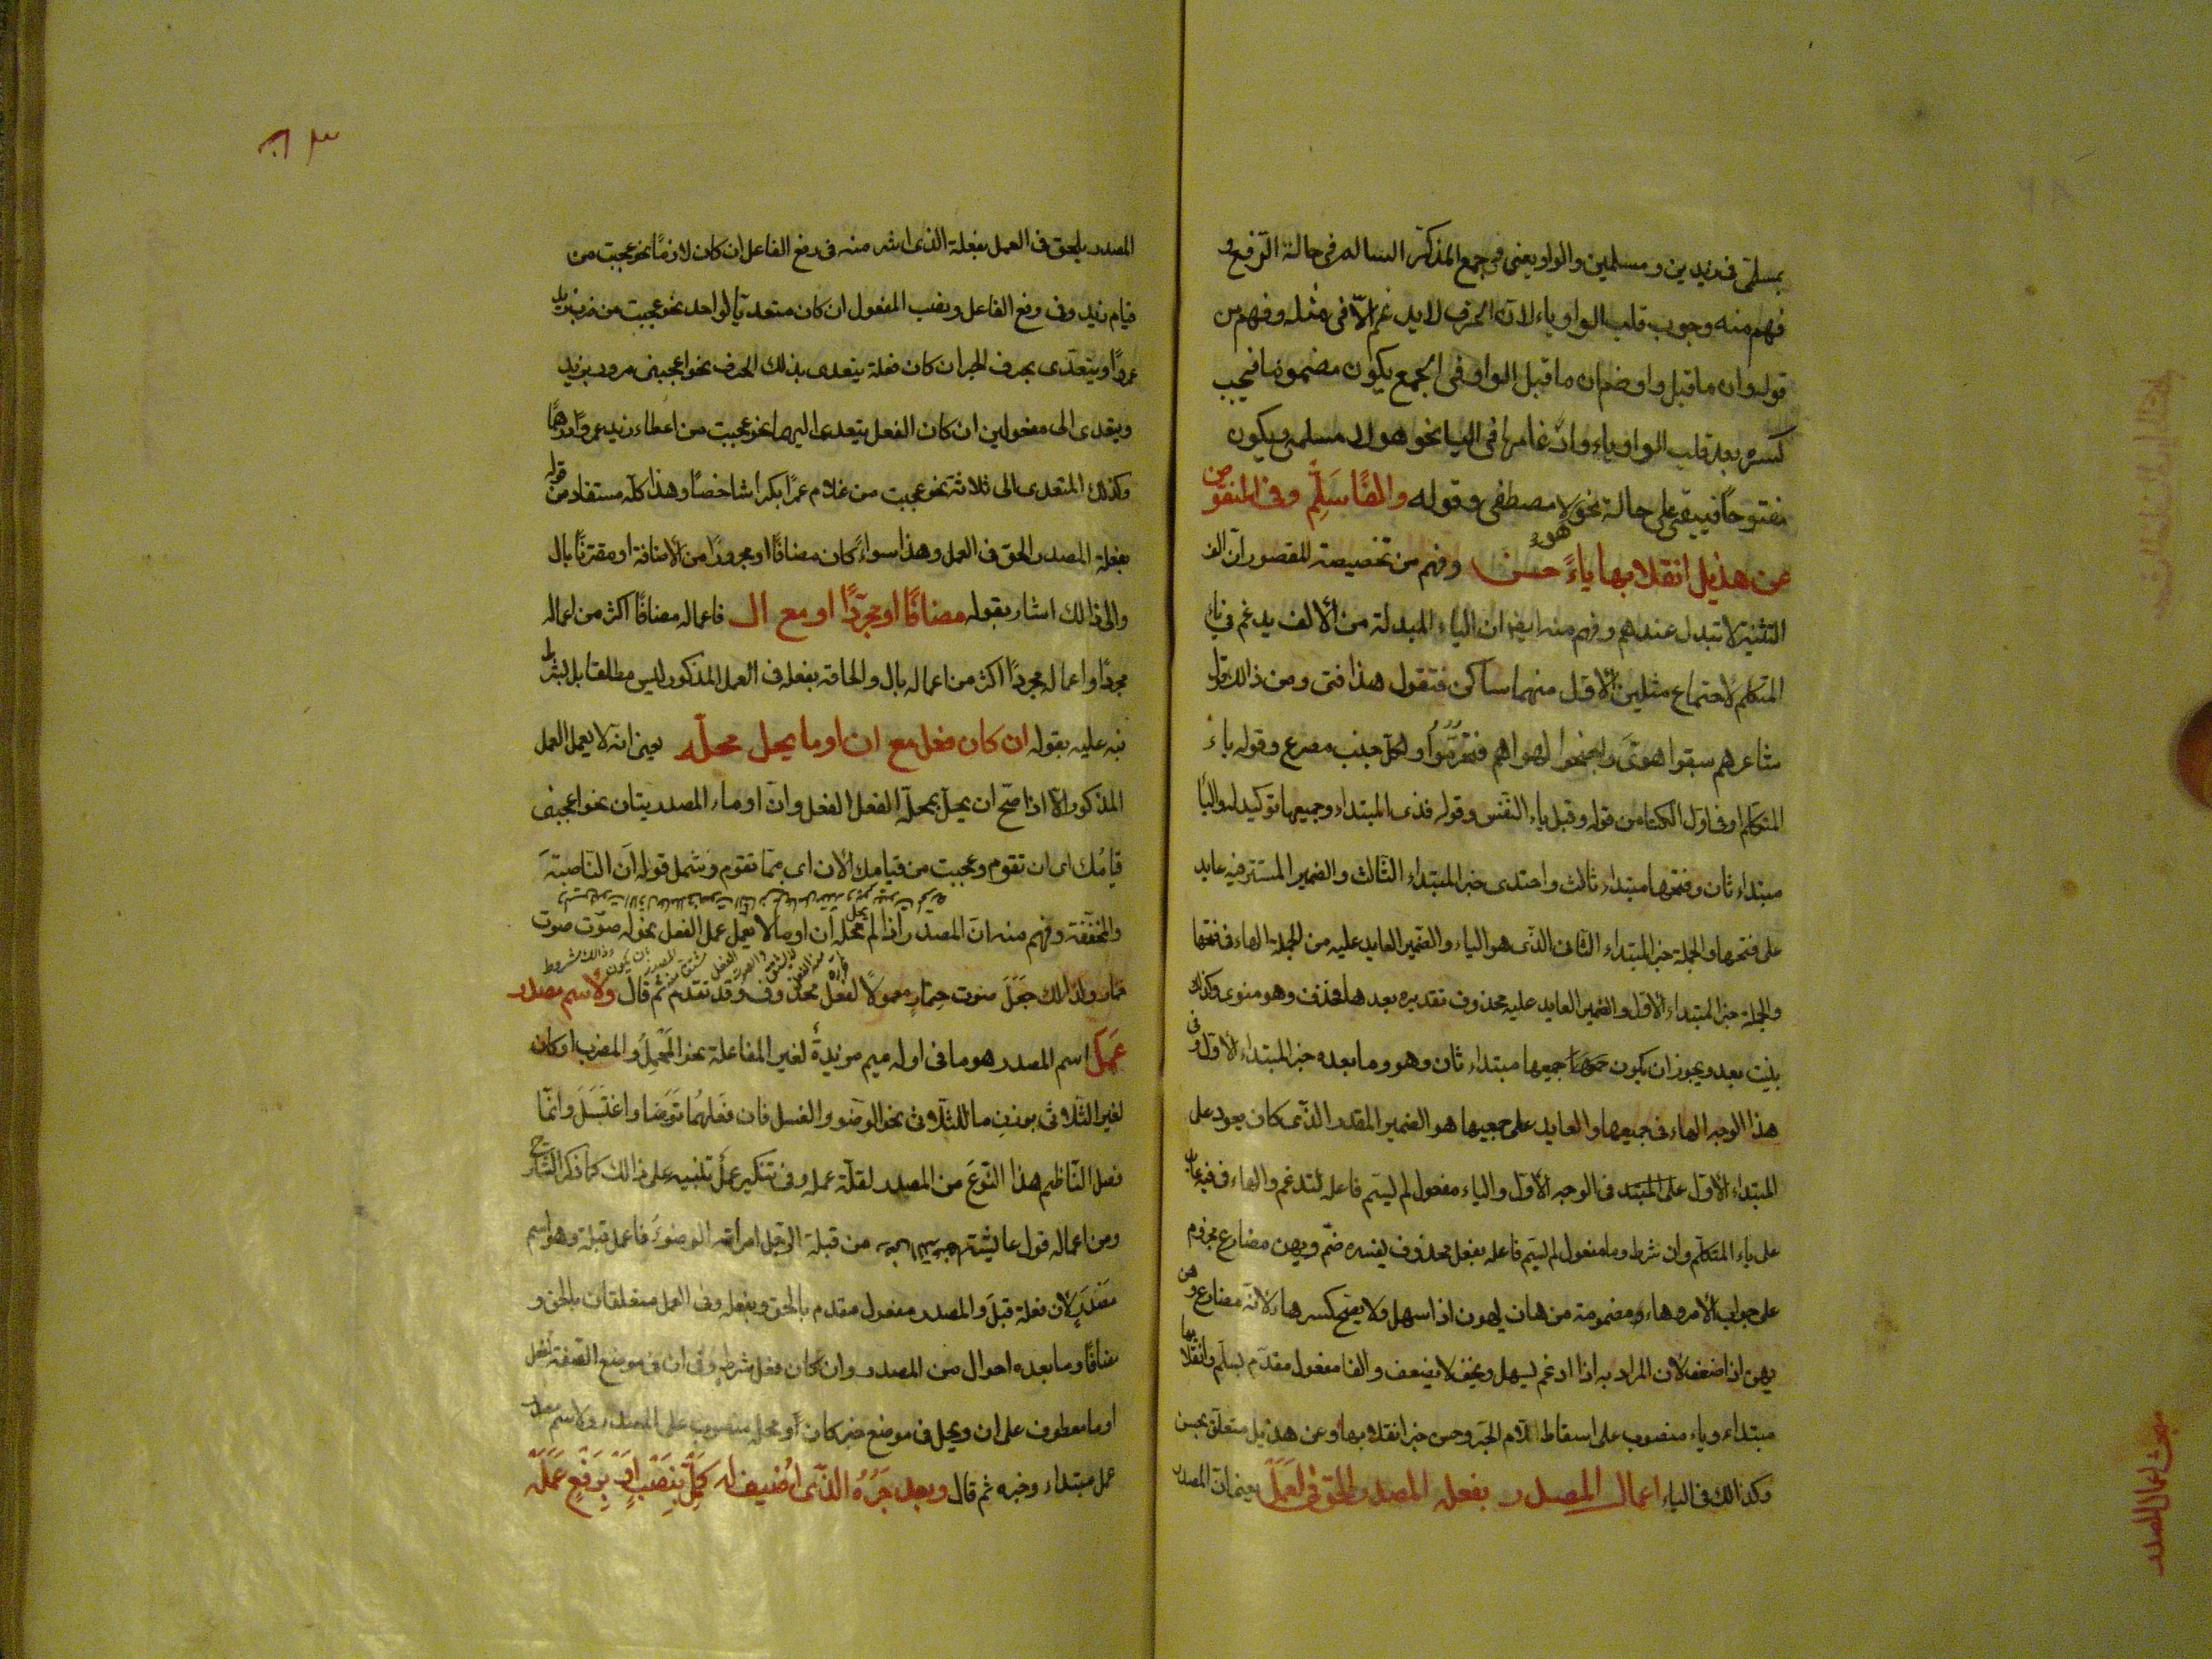 بمسلمى فى زيدين ومسلمين والواو يعنى فى جمع المذكر السالم فى حالة الرفع و
فهم منه وجوب قلب الواو ياء لان الحرف لا يدغم الا فى مثله وفهم من
قوله وان ما قبل واو ضم ان ما قبل الواو فى الجمع يكون مضموما فيجب
كسره بعد قلب الواو ياء وادغامها فى اليا نحو هولاء مسلمى ويكون
مفتوحا فيبقى على حالة نحو هولاء مصطفى وقوله والفًا سَلِّم وفى المقصور
عن هذيل انقلابها ياءً حسن وفهم من تخصيصه المقصور ان الف
التثنية لا تبدل عندهم وفهم منه ايضا ان الياء المبدلة من الالف يدغم فى ياء
المتكلم لاجتماع مثلين الاول منهما ساكن فتقول هذا فتى ومن ذالك قول
شاعرهم سبقوا هوىَّ واعنقوا لهواهم فتخرموا ولكل جنب مصرع وقوله ياء
المتكلم او فى اول الكتا من قوله وقبل ياء النفس وقوله فذى المبتداء وجميعها توكيد له واليا
مبتداء ثان وفتحها مبتداء ثالث واحتذى خبر المبتداء الثالث والضمير المستتر فيه عايد
على فتحها والجملة خبر المبتداء الثانى الذى هو الياء والضمير العايد عليه من الجملة الهاء فى فتحها
والجملة خبر المبتداء الاول والضمير العايد عليه محذوف تقديره بعدها فحذف وهو منوى وكذلك
بنيت بعد ويجوز ان يكون جميعها مبتداء ثان وهو وما بعده خبر المبتداء الاول وفى
هذا الوجه الهاء فى جميعها والعايد على جميعها هو الضمير المقدر الذى كان يعود على
المبتداء الاول على المبتد فى الوجه الاول والياء مفعول لم يسم فاعله لتدغم والهاء فى فيه عايد
على ياء المتكلم وان شرط وما مفعول لم يسم فاعله بفعل محذوف يفسره ضم ويهن مضارع مجزوم
على جواب الامر وهاءه مضمومة من هان يهون اذا سهل ولا يصح كسر هاءه لانه مضارع وهن
يهن اذا ضعف لان المراد به اذا ادغم يسهل ويخف لا يضعف والفا مفعول مقدم بسلم وانقلابها
مبتداء وياء منصوب على اسقاط لام الجر وحسن خبر انقلابها وعن هذيل متعلق بحسن
وكذالك فى الياء اعمال المصدر بفعله المصدر الحق فى العمل يعنى ان المصدر
مبحث اعمال المصدر
٩٣
المصدر يلحق فى العمل بفعله الذى اشتر منه فى رفع الفاعل ان كان لازمًا نحو عجبت من
قيام زيد وفى رفع الفاعل ونصب المفعول ان كان متعديًا لواحد نحو عجبت من ضرب زيد
عمرًا ويتعدى بحرف الجر ان كان فعله يتعدى بذلك الحرف نحو اعجبنى مرور بزيد
ويتعدى الى مفعولين ان كان الفعل يتعدى اليهما نحو عجبت من اعطاء زيد عمروًا درهمًا
وكذلك المتعدى الى ثلاثة نحو عجبت من غلام عمرًا بكرًا شاخصًا وهذا كله مستفاد من قوله
بفعله المصدر الحق فى العمل وهذا سواء كان مضافًا او مجرورًا من الاضافة او مقترنًا بال
والى ذالك اشار بقوله مضافًا او مجرّدًا او مع ال فاعماله مضافًا اكثر من اعماله
مجردًا واعماله مجردًا اكثر من اعماله بال والحاقه بفعله فى العمل المذكور ليس مطلقا بل بشرط
نبه عليه بقوله ان كان فعل مع ان او ما يحل محله يعنى انه لا يعمل العمل
المذكور الا اذا صح ان يحل محله الفعل وان او ماء المصدريتان نحو اعجبنى
قيامُك اى ان تقوم وعجبت من قيامك الان اى مما تقوم وشمل قوله ان الناصبة
والمخففة وفهم منه ان المصدر اذا لم يحل محله ان او ما لا يعمل عمل الفعل نحو له صوت صوت
حمار ولذلك جعل صوت حمارٍ معمولًا لفعل محذوف وقد تقدم ثم قال ولاسم مصدر
عَمَل اسم المصدر هو ما فى اوله ميم مزيدةٌ لغير المفاعلة نحو المَحْمِل والمضرب او كان
لغير الثلاثى بوزن ما للثلاثى نحو الوضوء والغسل فان فعلهُما توضا واغتسل وانما
فصل الناظم هذا النوع من المصدر لقلة عمله وفى تنكير عمل تنبيه على ذالك كما ذكر الشارح
ومن اعماله قول عايشة من قبلة الرجل امراته الوضوء فاعمل قبلة وهو اسم
مصدرٍ لان فعله قبل والمصدر مفعول مقدم بالحق وبفعله وفى العمل متعلقان بالحق و
مضافًا وما بعده احوال من المصدر وان كان فعل شرط وفى ان فى موضع الصفة لفعل
او ما معطوف على ان ويحل فى موضع خبر كان او محله منصوب على المصدر ولاسم مصدر
عمل مبتداء وخبره ثم قال وبعد جَرِّهِ الذى اُضيف له كَمِّل بِنَصْبٍ اَوْ بِرَفْعٍ عَمَلَه